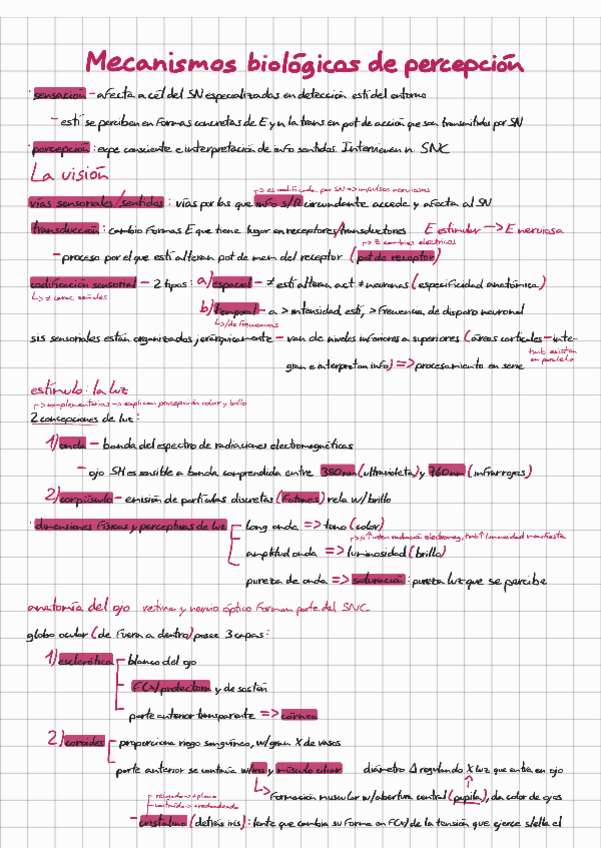 Mecanismos biológicos de percepción
· sensación - afecta a cél del SN especializadas en detección estí del entorno
- estí se perciben en formas concretas de E y n la trans en pot de acción que son transmitidos por SN
· percepción: expe consciente e interpretación de info sentidos. Intervienen n. SNC
La visión
↳ es codificada por SN => impulsos nerviosos
vías sensoriales/sentidos: vías por las que info s/R circundante accede y afecta al SN
transducción: cambio formas E que tiene lugar en receptores/transductores E estimular -> E nerviosa
↳ ≠ cambios eléctricos
- proceso por el que estí alteran pot de mem del receptor (pot de receptor)
codificación sensorial - 2 tipos: a) espacial - ≠ estí alteran act ≠ neuronas (especificidad anatómica)
↳ ≠ carac señales
b) temporal - a > intensidad estí, > frecuencia de disparo neuronal
↳ de frecuencias
sis sensoriales están organizados jerárquicamente - van de niveles inferiores a superiores (áreas corticales - inte-
gran e interpretan info) => procesamiento en serie
tmb existen en paralelo
estímulo: la luz
↳ complementarias -> explican percepción color y brillo
2 concepciones de luz:
1) onda - banda del espectro de radiaciones electromagnéticas
- ojo SH es sensible a banda comprendida entre 380nm (ultravioleta) y 760nm (infrarrojos)
2) corpúsculo - emisión de partículas discretas (fotones) rela w/ brillo
· dimensiones físicas y perceptivas de luz
long onda => tono (color)
↳ si ↑ inten radiación electromag, tmb ↑ luminosidad manifiesta
amplitud onda => luminosidad (brillo)
pureza de onda => saturación: pureza luz que se percibe
anatomía del ojo retina y nervio óptico forman parte del SNC
globo ocular (de fuera a dentro) posee 3 capas:
1) esclerótica
blanco del ojo
F(x) protectora y de sostén
parte anterior transparente => córnea
2) coroides
proporciona riego sanguíneo, w/ gran X de vasos
parte anterior se continúa w/ iris y músculo ciliar diámetro Δ regulando X luz que entra en ojo
↳ formación muscular w/ abertura central (pupila), da color de ojos
relajado -> plano
contraído -> redondeado
- cristalino (detrás iris): lente que cambia su forma en F(x) de la tensión que ejerce s/ella el